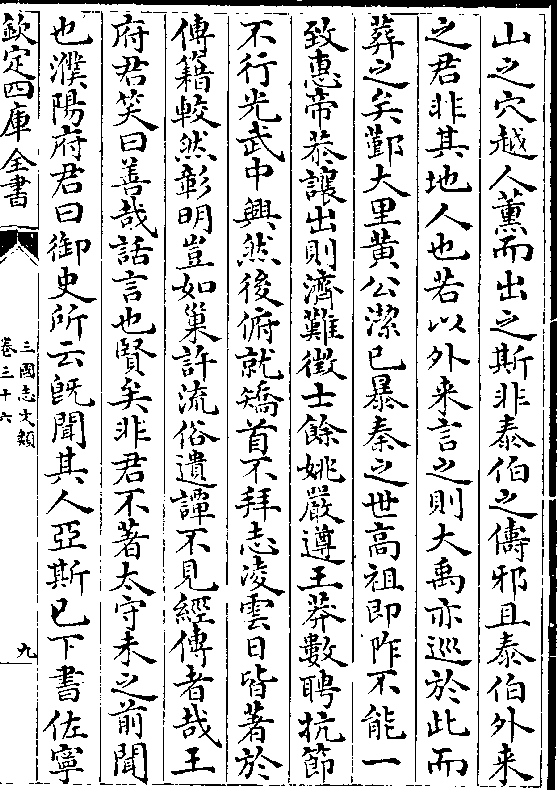 山之穴越人薰而出之斯非泰伯之儔邪且泰伯外来
之君非其地人也若以外来言之則大禹亦巡於此而
葬之矣鄞大里黄公潔已暴秦之世高祖即阼不能一
致惠帝恭讓出則濟難徵士餘姚嚴遵王莽數聘抗節
不行光武中興然後俯就矯首不拜志凌雲日皆著於
傳籍較然彰明豈如巢許流俗遺譚不見經傳者哉王
府君笑曰善哉話言也賢矣非君不著太守未之前聞
也濮陽府君曰御史所云旣聞其人亞斯已下書佐寧
欽定四庫全書
三國志文類
卷三十六
九